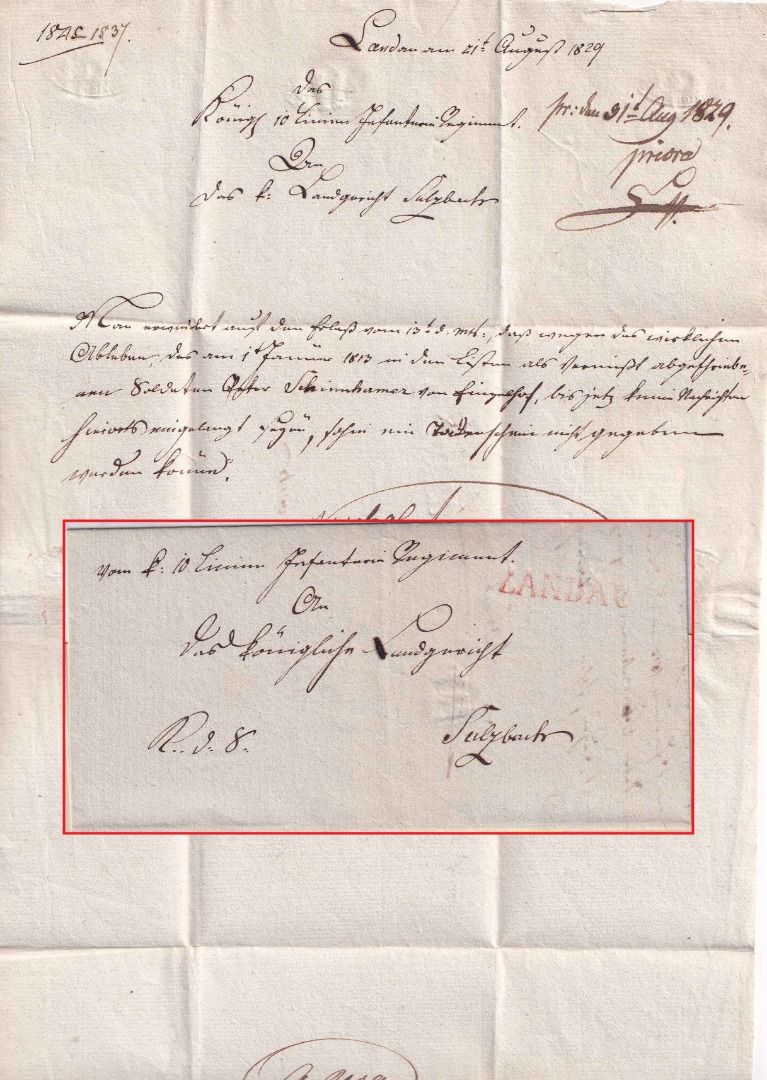 1828/1837.
Landau am 21t August 1829
Das
Königl 10 Linien Infanterie Regiment.
An
das k: Landgericht Sulzbach
pr: den 31t Aug 1829.
priora
Man erwiedert auf den Erlaß vom 13t d. Mts:, daß wegen des wirklichen
Ablebens, des am 1t Januar 1813 in den Listen als vermißt abgeschriebe-
nen Soldaten Peter Schinnhamer von Einzelhof, bis jetz keine Nachrichten
hierorts eingelangt seyen, sohin ein Todtenschein nicht gegeben
werden könne.
vom k: 10 Linien Infanterie Regiment.
LANDAU
An
das königliche Landgericht
R. d. S.
Sulzbach